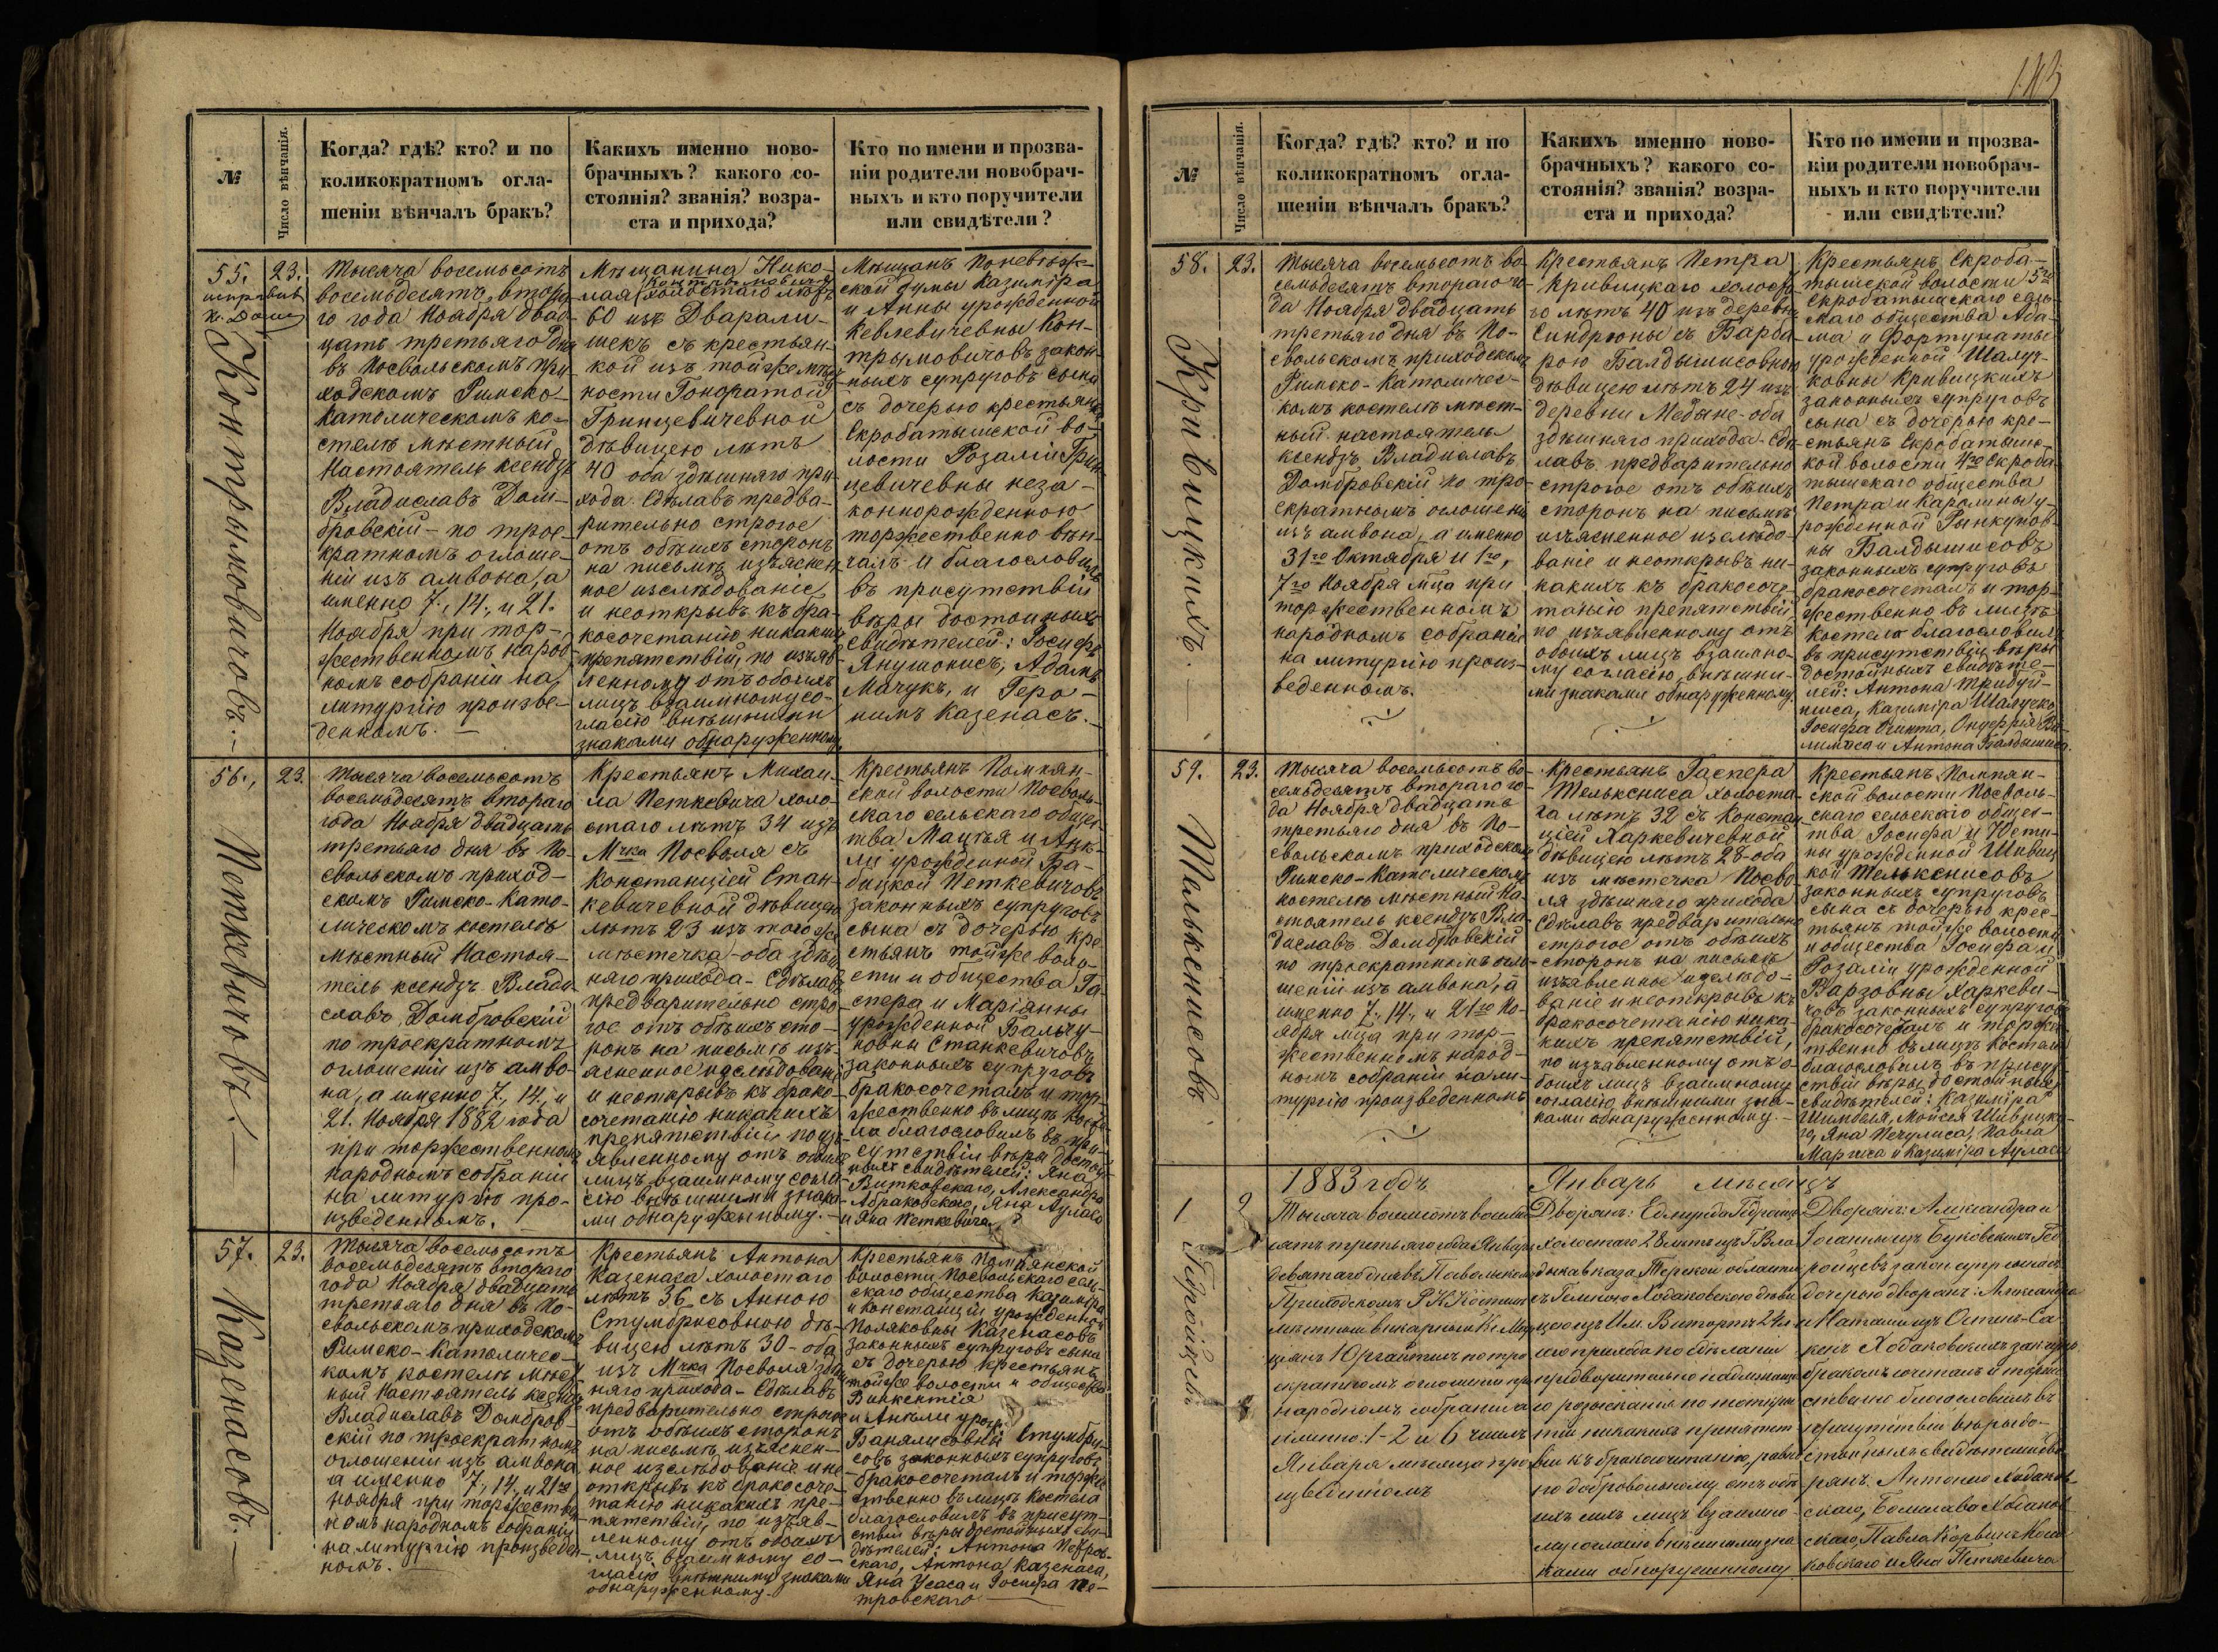 №
Число вѣнчанія.
Когда? гдѣ? кто? и по
коликократномъ огла-
шеніи вѣнчалъ бракъ?
Какихъ именно ново-
брачныхъ? какого со-
стоянія? званія? возра-
ста и прихода?
Кто по имени и прозва-
ніи родители новобрач-
ныхъ и кто поручители
или свидѣтели?
55.
Контрымовичовъ. –
23.
Тысяча восемьсотъ
восемьдесятъ втора-
го года Ноября двад-
цать третьяго дня
въ Посвольскомъ при-
ходскомъ Римско-
Католическомъ ко-
стелѣ мѣстный
Настоятель ксендзъ
Владиславъ Дом-
бровскій – по трое-
кратномъ оглаше-
ніи изъ амвона, а
именно 7, 14, и 21.
Ноября при тор-
жественномъ народ-
номъ собраніи на
литургію произве-
денномъ. –
Мѣщанина Нико-
лая Контрымовича холостаго лѣтъ
60 изъ Дварали-
шекъ съ крестьян-
кой изъ той же мѣст-
ности Гоноратой
Гринцевичевной
дѣвицею лѣтъ
40 оба здѣшняго при-
хода. Сдѣлавъ предва-
рительно строгое
отъ обѣихъ сторонъ
на письмѣ изъяснен-
ное изслѣдованіе,
и неоткрывъ къ бра-
косочетанію никакихъ
препятствій, по изъяв-
ленному отъ обоихъ
лицъ взаимному со-
гласію внѣшними
знаками обнаруженному.
Мѣщанъ Поневѣж-
ской думы Казиміра
и Анны урожденной
Кевлевичевны Кон-
трымовичовъ закон-
ныхъ супруговъ сына
съ дочерью крестьянки
Скробатышской во-
лости Розаліи Грин-
цевичевны неза-
коннорожденною
торжественно вѣн-
чалъ и благословилъ
въ присутствіи
вѣры достойныхъ
свидѣтелей: Іосифъ
Янушонисъ, Адамъ
Мачукъ, и Геро-
нимъ Казенасъ. –
56.,
Петкевичовъ. –
23.
Тысяча восемьсотъ
восемьдесятъ втораго
года Ноября двадцать
третьяго дня въ По-
свольскомъ приход-
скомъ Римско-Като-
лическомъ костелѣ
мѣстный Настоя-
тель ксендзъ Влади-
славъ Домбровскій
по троекратномъ
оглашеніи изъ амво-
на, а именно 7, 14, и
21. Ноября 1882 года
при торжественномъ
народномъ собраніи
на литургію про-
изведенномъ.
Крестьянъ Михаи-
ла Петкевича холо-
стаго лѣтъ 34 изъ
М-чка Посволя съ
Констанціей Стан-
кевичевной дѣвицею
лѣтъ 23 изъ того же
мѣстечка – оба здѣш-
няго прихода – Сдѣлавъ
предварительно стро-
гое отъ обѣихъ сто-
ронъ на письмѣ изъ-
ясненное изслѣдованіе
и неоткрывъ къ брако-
сочетанію никакихъ
препятствій, по изъ-
явленному отъ обоихъ
лицъ взаимному согла-
сію внѣшними знака-
ми обнаруженному. –
Крестьянъ Помпян-
ской волости Посволь-
скаго сельскаго общес-
тва Мацѣя и Анѣ-
ли урожденной Ба-
бицкой Петкевичовъ
законныхъ супруговъ
сына съ дочерью кре-
стьянъ той же воло-
сти и общества Га-
спера и Маріанны
урожденной Бальчу-
новны Станкевичовъ
законныхъ супруговъ
бракосочеталъ и тор-
жественно въ лицѣ косте-
ла благословилъ въ при-
сутствіи вѣры достой-
ныхъ свидѣтелей: Яна
Витковскаго, Александра
Абраковскаго, Яна Ауласа
и Яна Петкевича.
57.
Казенасовъ. –
23.
Тысяча восемьсотъ
восемьдесятъ втораго
года Ноября двадцать
третьяго дня въ По-
свольскомъ приходскомъ
Римско-Католичес-
комъ костелѣ мѣст-
ный Настоятель ксендзъ
Владиславъ Домбров-
скій по троекратномъ
оглашеніи изъ амвона,
а именно 7, 14, и 21го
ноября при торжествен-
номъ народномъ собраніи
на литургію произведен-
номъ.
Крестьянъ Антона
Казенаса холостаго
лѣтъ 36 съ Анною
Стумбрисовною дѣ-
вицею лѣтъ 30 – оба
изъ М-чка Посволя здѣш-
няго прихода – Сдѣлавъ
предварительно строгое
отъ обѣихъ сторонъ
на письмѣ изъяснен-
ное изслѣдованіе и не-
открывъ къ бракосоче-
танію никакихъ пре-
пятствій, по изъяв-
ленному отъ обоихъ
лицъ взаимному со-
гласію внѣшними знаками
обнаруженному.
Крестьянъ Помпянской
волости Посвольскаго сель-
скаго общества Казиміра
и Констанціи урожденной
Поляковны Казенасовъ
законныхъ супруговъ сына
съ дочерью крестьянъ
той же волости и общества
Винкентія
и Анѣли урожд.
Банялисовны Стумбри-
совъ законныхъ супруговъ
бракосочеталъ и торже-
ственно въ лицѣ Костела
благословилъ въ присут-
ствіи вѣры достойныхъ сви-
дѣтелей: Антона Петров-
скаго, Антона Казенаса,
Яна Усаса и Іосифа Пе-
тровскаго
№
Число вѣнчанія.
Когда? гдѣ? кто? и по
коликократномъ огла-
шеніи вѣнчалъ бракъ?
Какихъ именно ново-
брачныхъ? какого со-
стоянія? званія? возра-
ста и прихода?
Кто по имени и прозва-
ніи родители новобрач-
ныхъ и кто поручители
или свидѣтели?
58.
Кривицкихъ. –
23.
Тысяча восемьсотъ во-
семьдесятъ втораго го-
да Ноября двадцать
третьяго дня въ По-
свольскомъ приходскомъ
Римско-Католичес-
комъ костелѣ мѣст-
ный настоятель
ксендзъ Владиславъ
Домбровскій по трое-
кратномъ оглашеніи
изъ амвона, а именно
31го Октября и 1го,
7го Ноября мца при
торжественномъ
народномъ собраніи
на литургію произ-
веденномъ.
Крестьянъ Петра
Кривицкаго холоста-
го лѣтъ 40 изъ деревни
Синдріоны съ Барба-
рою Балдышисовною
дѣвицею лѣтъ 24 изъ
деревни Медыне – оба
здѣшняго прихода – Сдѣ-
лавъ предварительно
строгое отъ обѣихъ
сторонъ на письмѣ
изъясненное изслѣдо-
ваніе и неоткрывъ ни-
какихъ къ бракосоче-
танію препятствій
по изъявленному отъ
обоихъ лицъ взаимно-
му согласію внѣшни-
ми знаками обнаруженному.
Крестьянъ Скроба-
тышской волости 5го
Скробатышскаго сель-
скаго общества Ада-
ма и Фортунаты
урожденной Шалуч-
ковны Кривицкихъ
законныхъ супруговъ
сына съ дочерью кре-
стьянъ Скробатышс-
кой волости 4го Скроба-
тышскаго общества
Петра и Каролины у-
рожденной Ринкунов-
ны Балдышисовъ
законныхъ супруговъ
бракосочеталъ и тор-
жественно въ лицѣ
костела благословилъ
въ присутствіи вѣры
достойныхъ свидѣте-
лей: Антона Трибуй-
ниса,
и Антона Балдышиса.
59.
Мелькснисовъ
23.
Тысяча восемьсотъ во-
семьдесятъ втораго го-
да Ноября двадцать
третьяго дня въ По-
свольскомъ приходскомъ
Римско-Католическомъ
костелѣ мѣстный На-
стоятель ксендзъ Вла-
диславъ Домбровскій
по троекратномъ огла-
шеніи изъ амвона, а
именно 7, 14, и 21го Но-
ября мца при тор-
жественномъ народ-
номъ собраніи на ли-
тургію произведенномъ
Крестьянъ Гаспера
Мелькениса холоста-
го лѣтъ 32 съ Констан-
ціей Харкевичевной
дѣвицею лѣтъ 28 – оба
изъ мѣстечка Посво-
ля здѣшняго прихода
Сдѣлавъ предварительно
строгое отъ обѣихъ
сторонъ на письмѣ
изъявленное изслѣдо-
ваніе и неоткрывъ къ
бракосочетанію ника-
кихъ препятствій,
по изъявленному отъ о-
боихъ лицъ взаимному
согласію внѣшними зна-
ками обнаруженному. –
Крестьянъ Помпян-
ской волости Посволь-
скаго сельскаго общес-
тва Іосифа и Юсти-
ны урожденной Шивиц-
кой Мелькенисовъ
законныхъ супруговъ
сына съ дочерью крес-
тьянъ той же волости
и общества Іосифа и
Розаліи урожденной
Варзовны Харкеви-
човъ законныхъ супруговъ
бракосочеталъ и торжес-
твенно въ лицѣ костела
благословилъ въ присут-
ствіи вѣры достойныхъ
свидѣтелей: Казиміра
Яна Печулиса, Павла
и Казиміра Ауласа
1883 годъ Январь мѣсяцъ
1
Гедройцевъ
9
Тысяча восемьсотъ восемьде-
сятъ третьяго года Января
девятаго дня въ Посвольскомъ
Приходскомъ Р К Костелѣ
мѣстный викарный Кс.
по тро-
екратномъ оглашеніи при
народномъ собраніи а
именно: 1-2 и 6 чиселъ
Января мѣсяца про-
изведенномъ
Дворянъ: Гедройца
холостаго 28 лѣтъ изъ Г. Вла-
дикавказа Терской области
съ Ходаковскою дѣви-
цею изъ Им. 24 л
предварительно
препятст-
вій къ бракосочетанію,
по добровольному
лицъ взаимно-
му согласію внѣшними зна-
ками обнаруженному
Дворянъ: Александра и
Гед-
ройцевъ закон. супр
дочерью дворянъ: Александра
и
Ходаковскихъ
бракомъ сочеталъ и торже-
ственно благословилъ въ
присутствіи вѣры до-
стойныхъ свидѣтелей дво-
рянъ: Антона Ходаков-
скаго, Болеслава Ходаков-
скаго, Павла
и Яна Петкевича